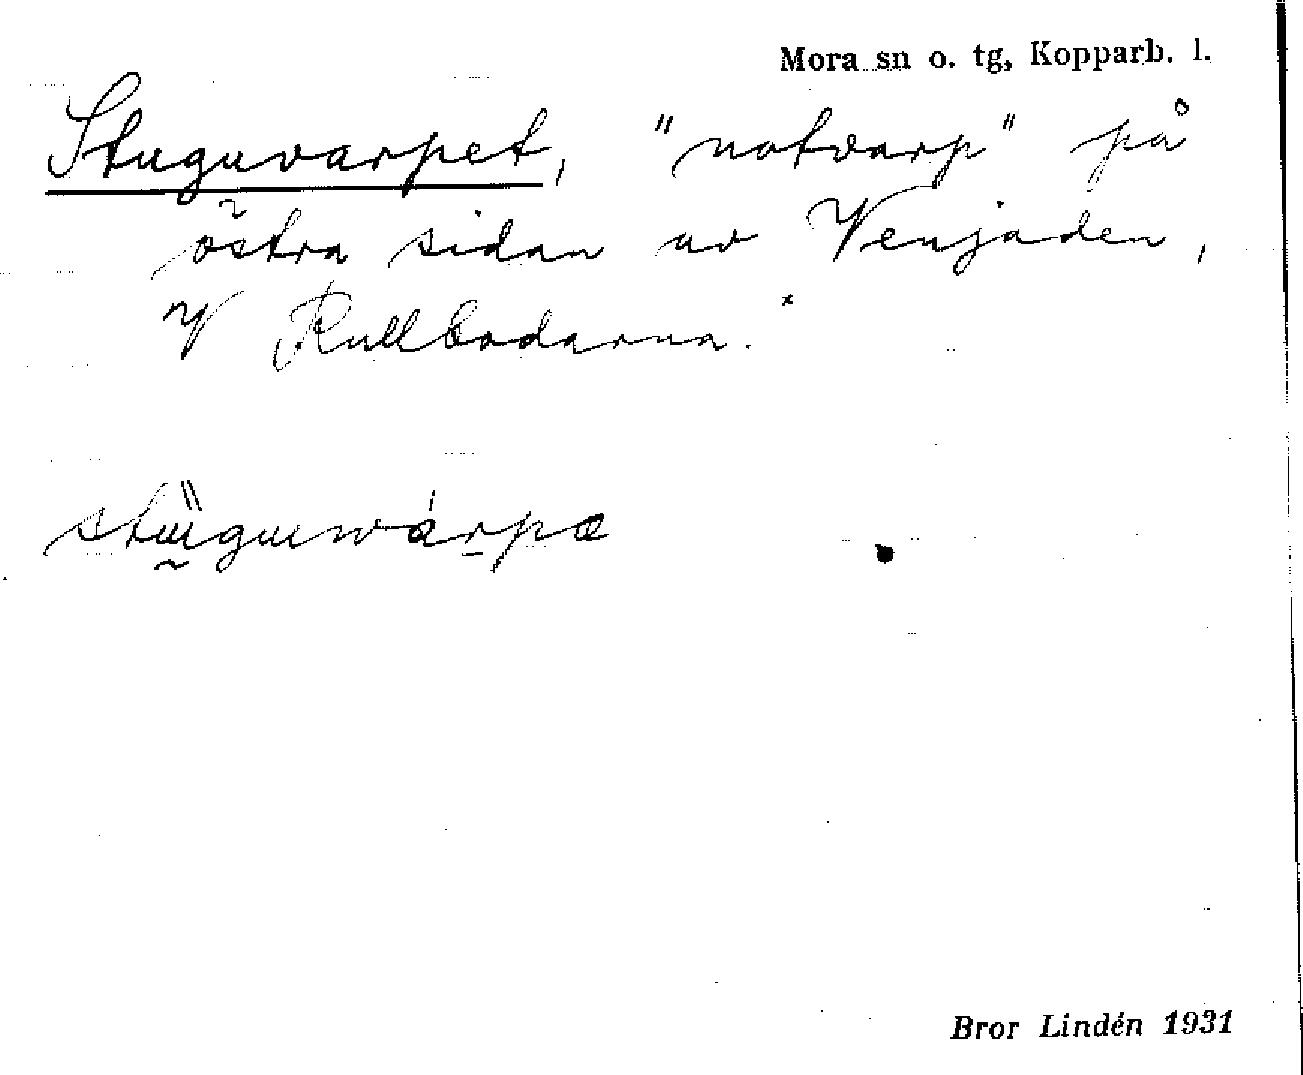 Mora sn o. tg, Kopparb. l.
Stuguvarpet, "notvarp" på
östra sidan av Venjaden,
V Rullbodarna.
stüguwárpæ
Bror Lindén 1931